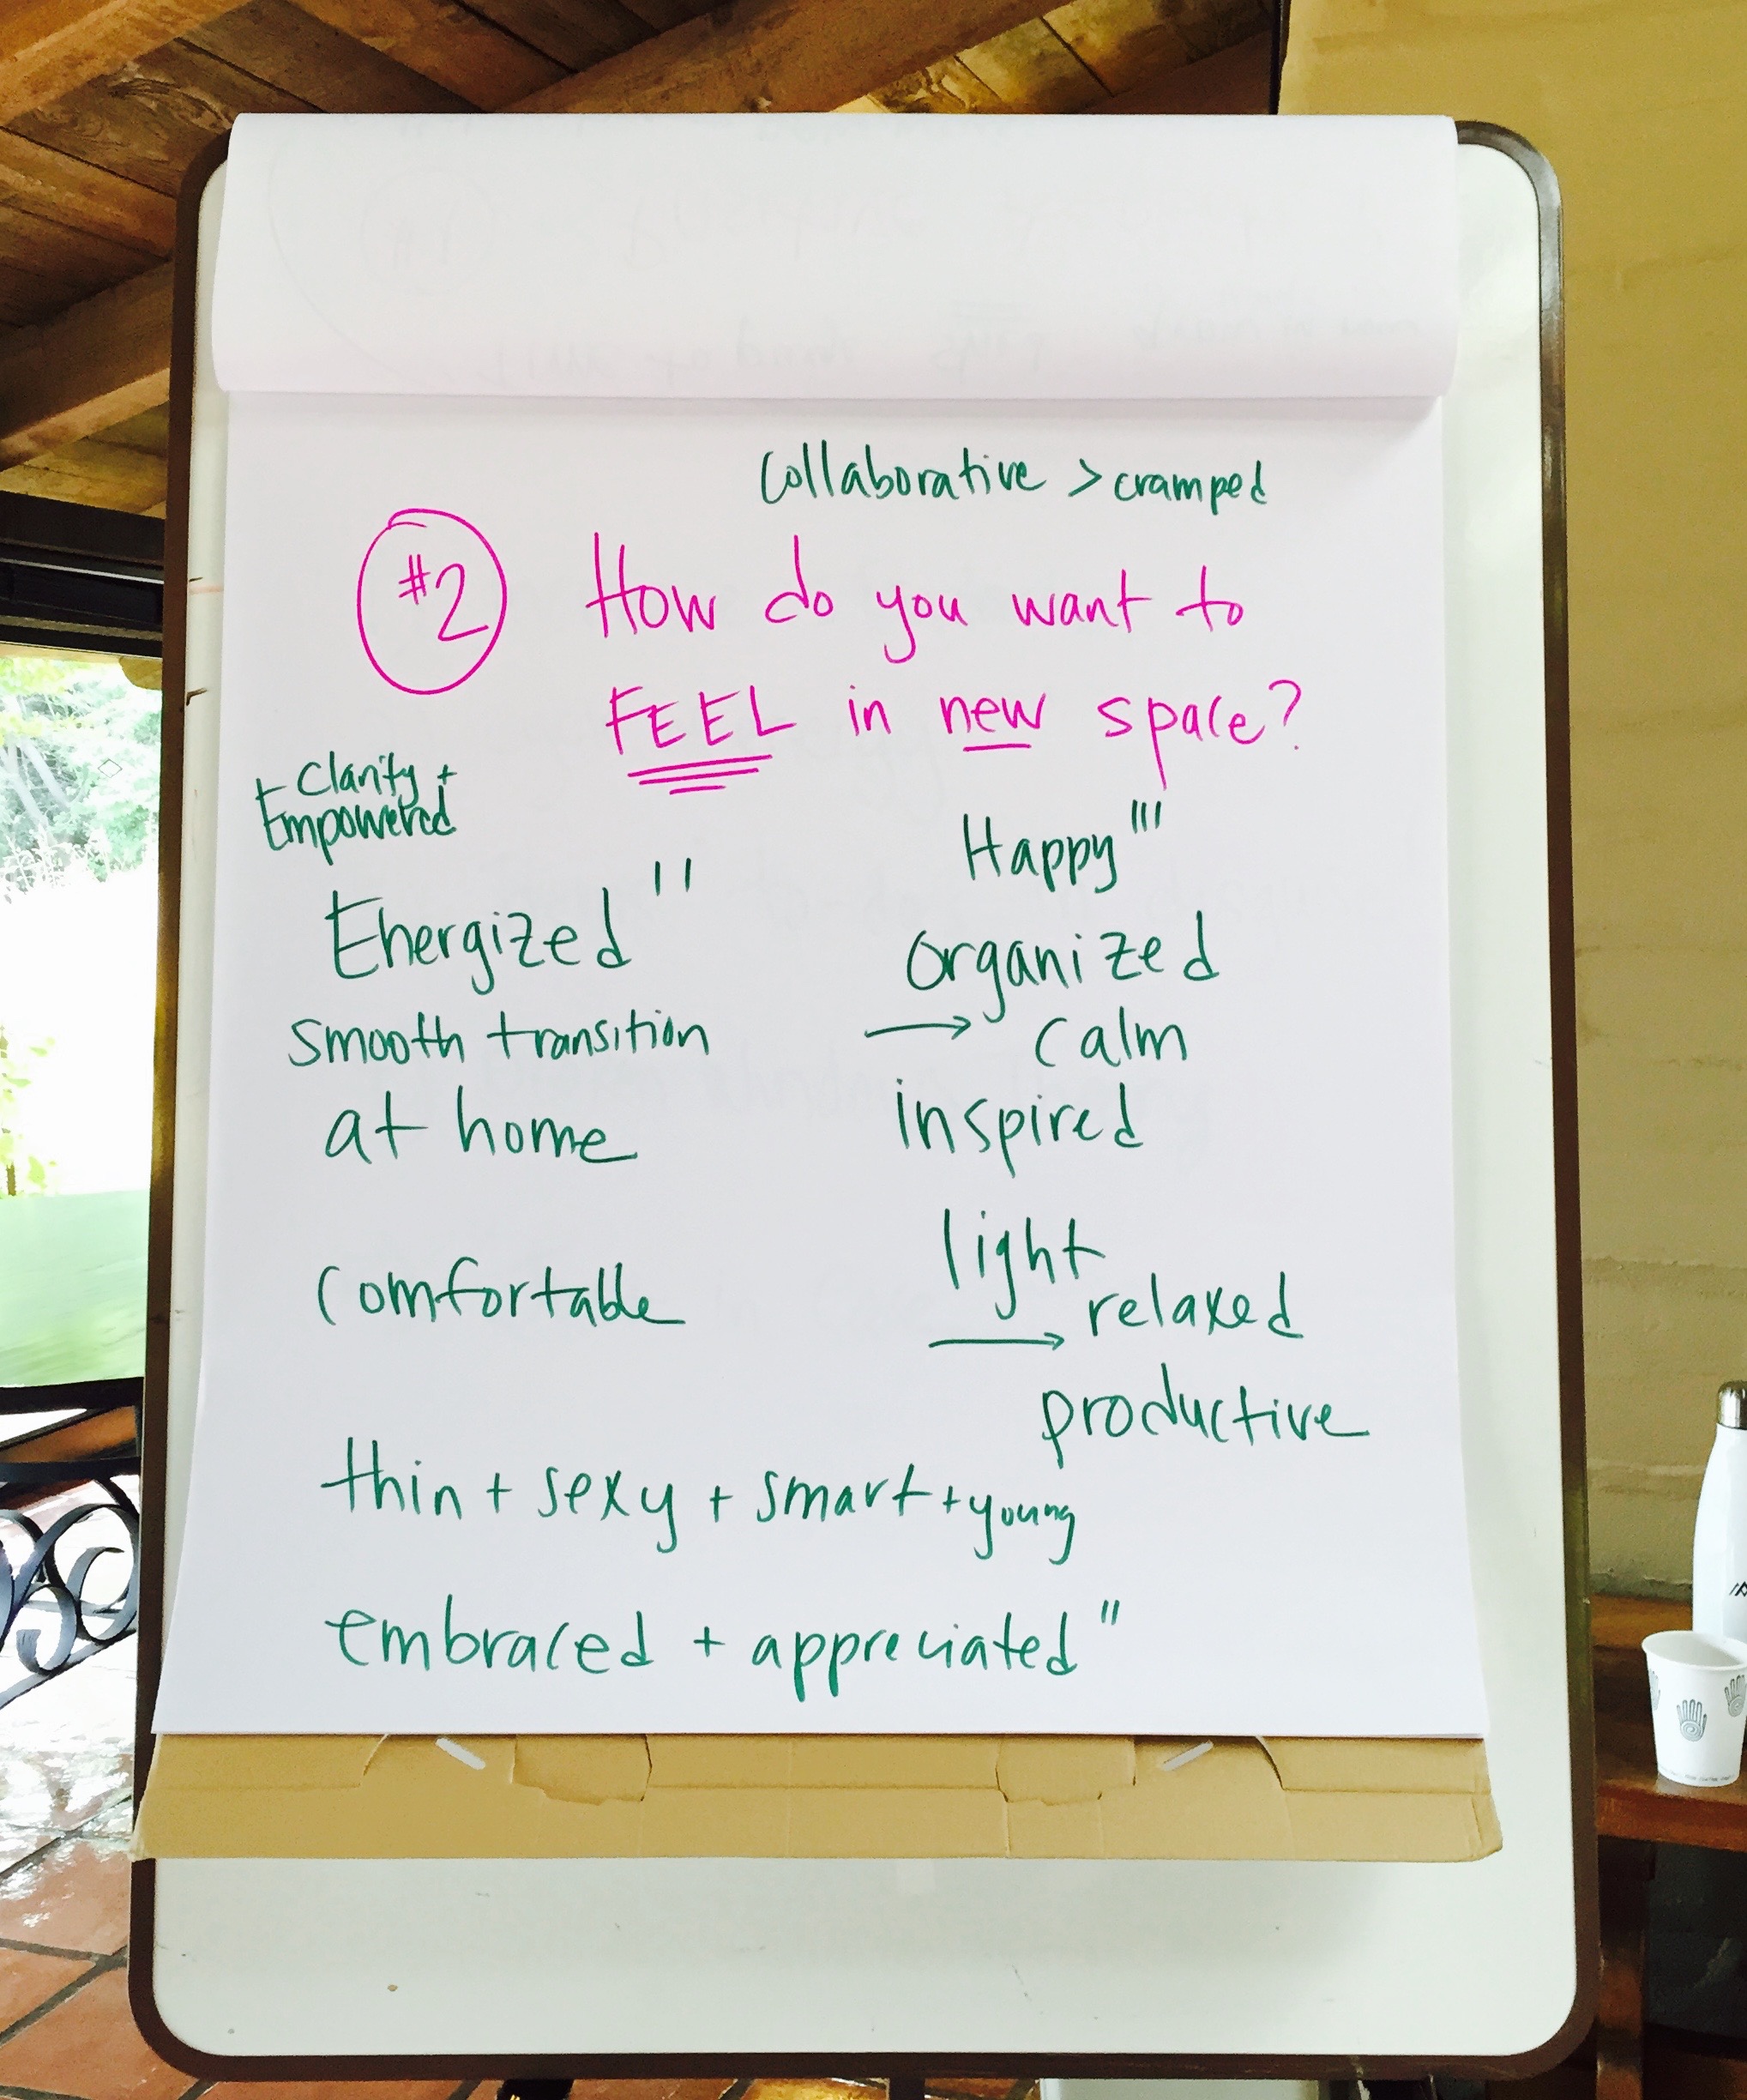 Collaborative > cramped
#2 How do you want to
FEEL in new space?
+ Clarity +
Empowered
Happy '''
Energized ''
organized
smooth transition
→ calm
at home
inspired
light
comfortable
→ relaxed
productive
thin + sexy + smart + young
embraced + appreciated "